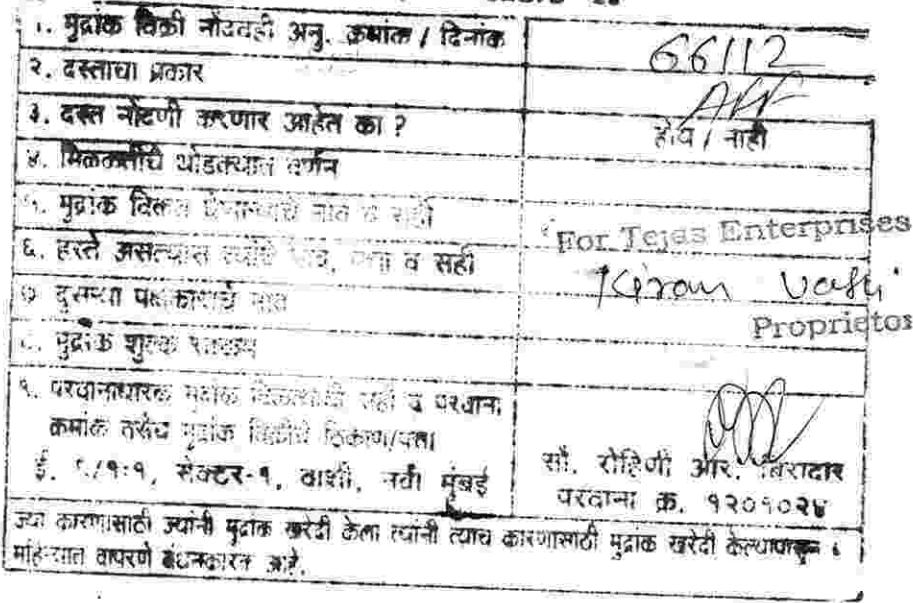 १. मुद्रांक विक्री नोंदवही अनु. क्रमांक / दिनांक
66112
२. दस्ताचा प्रकार
३. दस्त नोंदणी करणार आहेत का ?
होय / नाही
४. मिळकतीचे थोडक्यात वर्णन
५. मुद्रांक विकत घेणाऱ्याचे नाव व सही
For Tejas Enterprises
६. हस्ते असल्यास त्यांचे नाव, पत्ता व सही
Kiran Vashi
७. दुसऱ्या पक्षकाराचे नाव
Proprietor
८. मुद्रांक शुल्क रक्कम
९. परवानाधारक मुद्रांक विक्रेत्याची सही व परवाना
क्रमांक तसेच मुद्रांक विक्रीचे ठिकाण/पत्ता
सेक्टर-१, वाशी, नवी मुंबई
सौ. रोहिणी आर. बिरादार
परवाना क्र. १२०१०२४
ज्या कारणासाठी ज्यांनी मुद्रांक खरेदी केला त्यांनी त्याच कारणासाठी मुद्रांक खरेदी केल्यापासून ६
महिन्यात वापरणे बंधनकारक आहे.